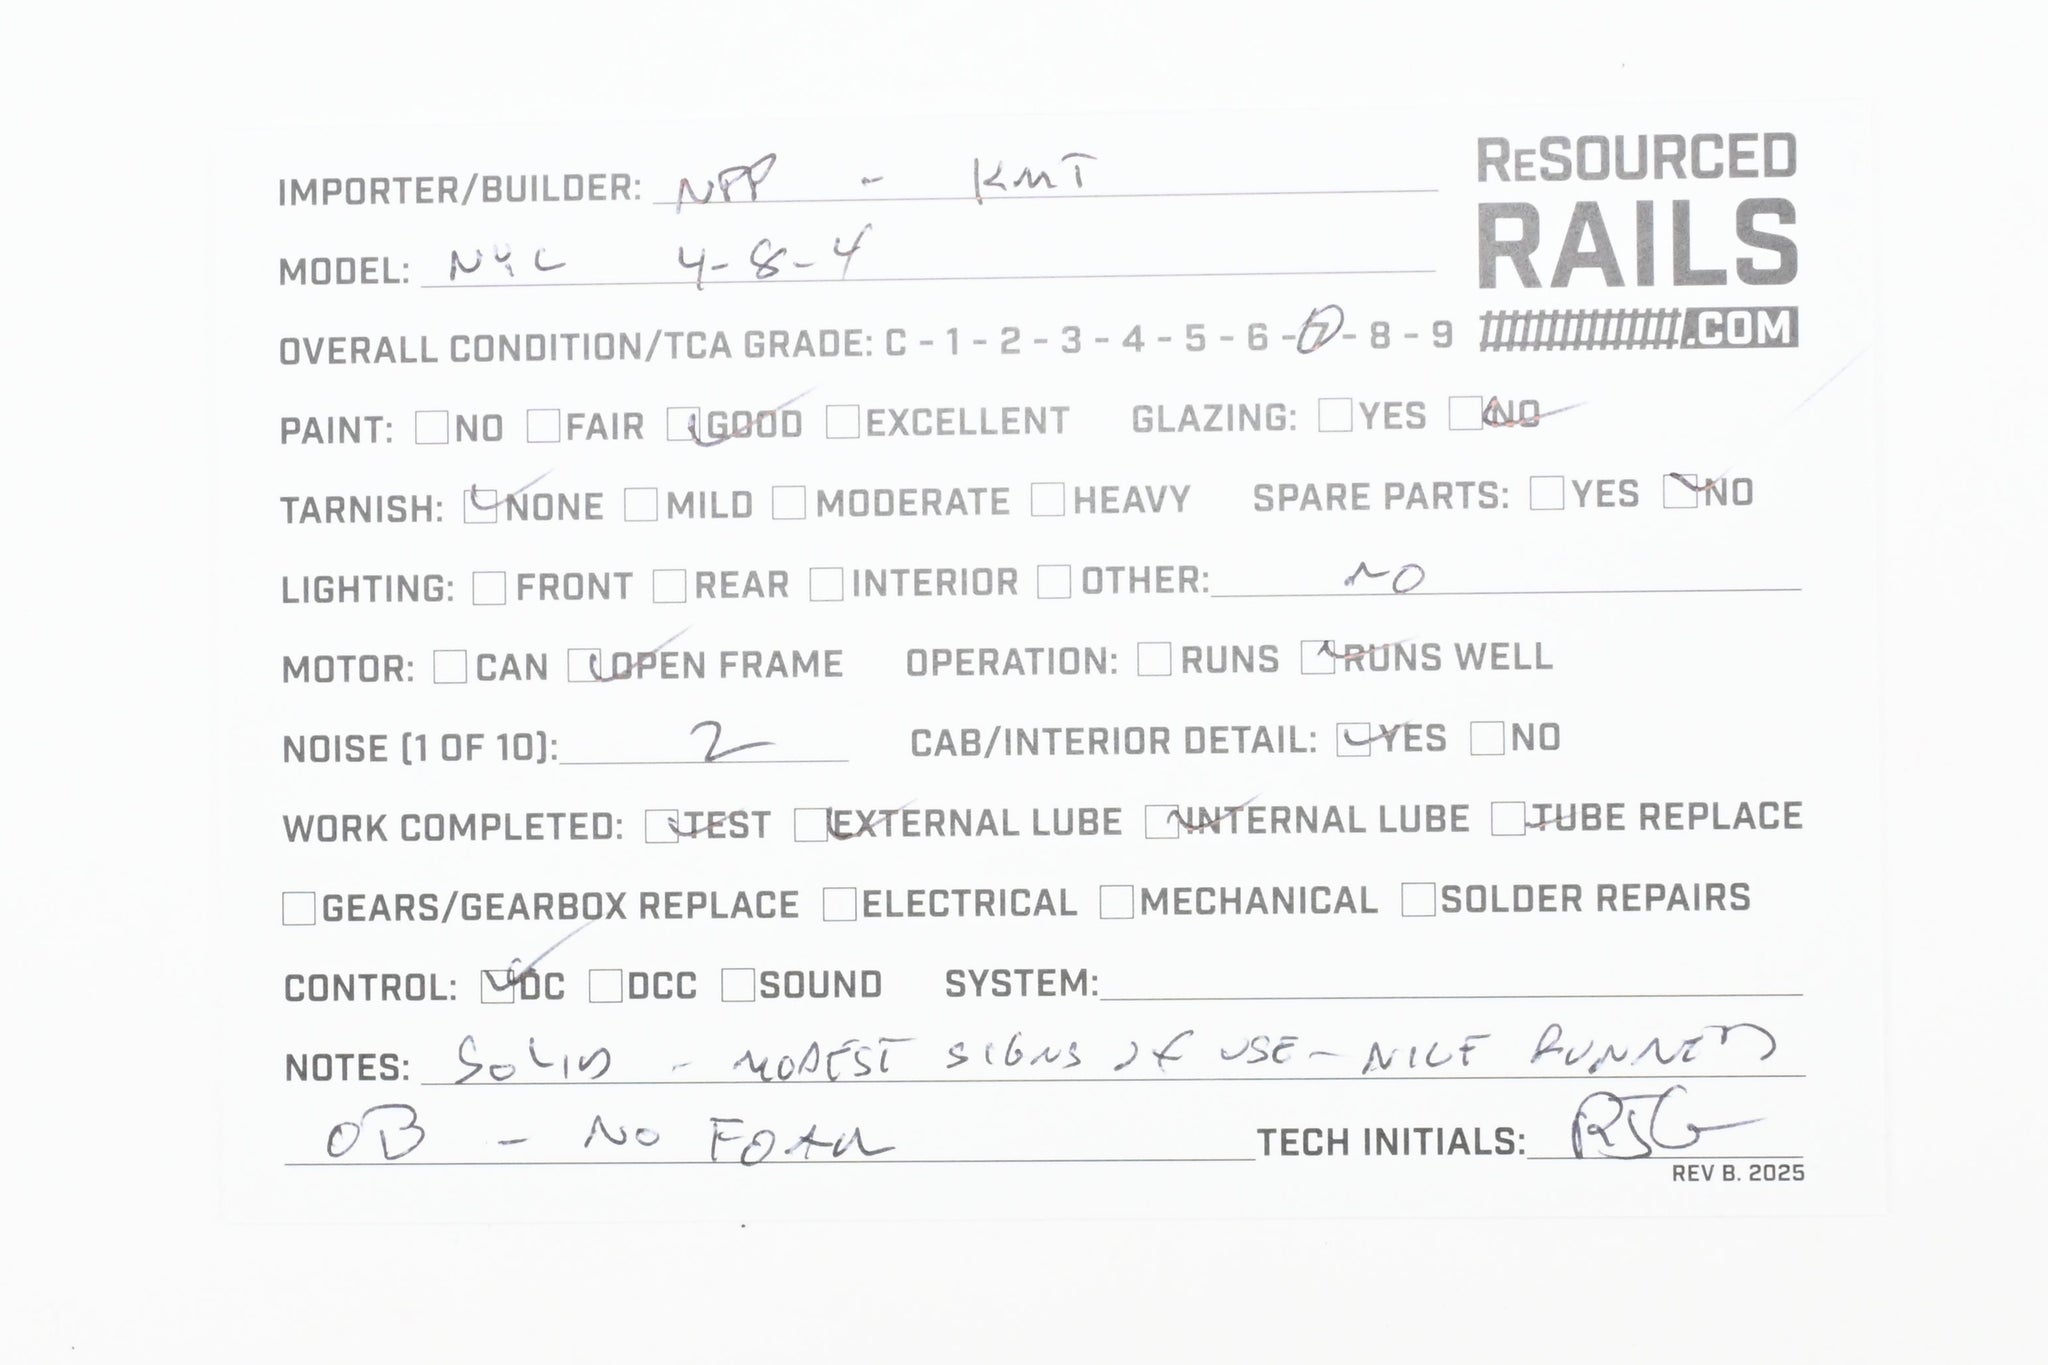 RESOURCED
RAILS
.COM
IMPORTER/BUILDER: NPP - KMT
MODEL: NYC 4-8-4
OVERALL CONDITION/TCA GRADE: C - 1 - 2 - 3 - 4 - 5 - 6 - 7 - 8 - 9
PAINT: NO FAIR GOOD EXCELLENT GLAZING: YES NO
TARNISH: NONE MILD MODERATE HEAVY SPARE PARTS: YES NO
LIGHTING: FRONT REAR INTERIOR OTHER: NO
MOTOR: CAN OPEN FRAME OPERATION: RUNS RUNS WELL
NOISE (1 OF 10): 2 CAB/INTERIOR DETAIL: YES NO
WORK COMPLETED: TEST EXTERNAL LUBE INTERNAL LUBE TUBE REPLACE
GEARS/GEARBOX REPLACE ELECTRICAL MECHANICAL SOLDER REPAIRS
CONTROL: DC DCC SOUND SYSTEM:
NOTES: SOLID - MODEST SIGNS OF USE - NICE RUNNER
OB - NO FOAM TECH INITIALS: RJG
REV B. 2025